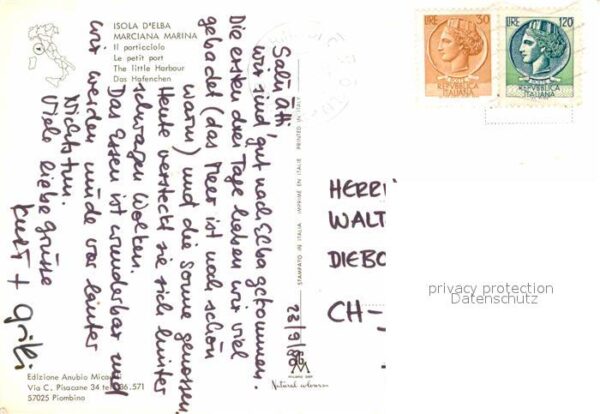 ISOLA D'ELBA
MARCIANA MARINA
Il porticciolo
Le petit port
The little Harbour
Das Hafenchen
Salü Ätti
wir sind gut nach Elba gekommen.
Die ersten drei Tage haben wir viel
gebadet (das Meer ist noch schön
warm) und die Sonne genossen.
Heute versteckt sie sich hinter
schwarzen Wolken.
Das Essen ist wunderbar und
wir werden müde vor lauter
Nichtstun.
Viele liebe Grüsse
Kurt +
28/9/80
STAMPATO IN ITALIA - IMPRIMÉ EN ITALIE - PRINTED IN ITALY
LIRE 30
POSTE
REPVBBLICA
ITALIANA
LIRE 120
POSTE
REPVBBLICA
ITALIANA
HERR
WALT
DIEBO
CH-
privacy protection
Datenschutz
Edizione Anubio
Via C. Pisacane 34 tel. 36.571
57025 Piombino
Natural colours